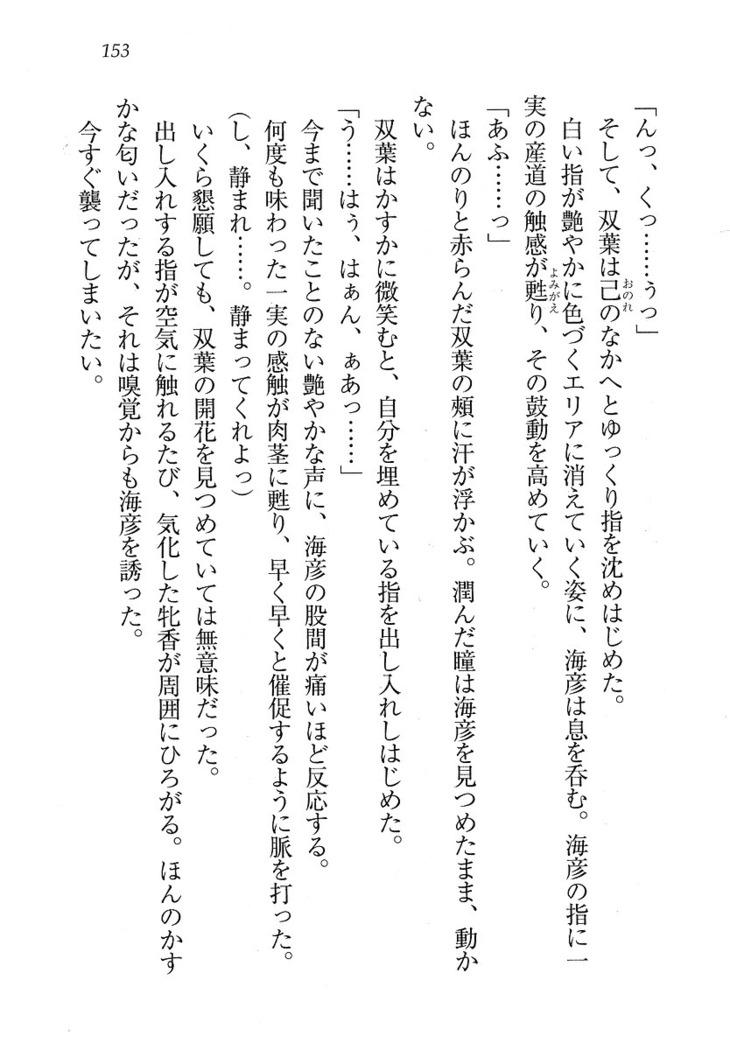 153
「んっ、くっ……うっ」
そして、双葉は己のなかへとゆっくり指を沈めはじめた。
白い指が艶やかに色づくエリアに消えていく姿に、海彦は息を呑む。海彦の指に一
実の産道の触感が甦り、その鼓動を高めていく。
「あふ……っ」
ほんのりと赤らんだ双葉の頰に汗が浮かぶ。潤んだ瞳は海彦を見つめたまま、動か
ない。
双葉はかすかに微笑むと、自分を埋めている指を出し入れしはじめた。
「う……はぅ、はぁん、ぁあっ……」
今まで聞いたことのない艶やかな声に、海彦の股間が痛いほど反応する。
何度も味わった一実の感触が肉茎に甦り、早く早くと催促するように脈を打った。
(し、静まれ……。静まってくれよっ)
いくら懇願しても、双葉の開花を見つめていては無意味だった。
出し入れする指が空気に触れるたび、気化した牝香が周囲にひろがる。ほんのかす
かな匂いだったが、それは嗅覚からも海彦を誘った。
今すぐ襲ってしまいたい。
おのれ
よみがえ